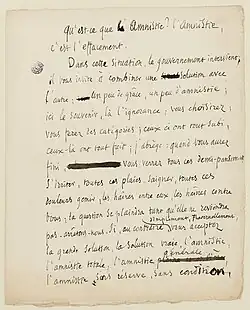 qu'est-ce que l'amnistie? l'amnistie,
c'est l'effacement.
Dans cette situation, le gouvernement intervient,
il vous invite à combiner une solution avec
l'autre, un peu de grâce, un peu d'amnistie;
ici le souvenir, là l'ignorance; vous choisirez;
vous ferez des catégories; ceux-ci ont tout subi,
ceux-là ont tout fait; j'abrège; quand vous aurez
fini, vous verrez tous ces demi-pardonnés
s'irriter, toutes ces plaies saigner, toutes ces
douleurs gémir, les haines entre eux, les haines contre
vous; la question se plaindra tant qu'elle ne
Si, au contraire, vous acceptez
simplement,
la grande solution, la solution vraie, l'amnistie,
l'amnistie totale, l'amnistie générale,
l'amnistie sans réserve, sans condition,